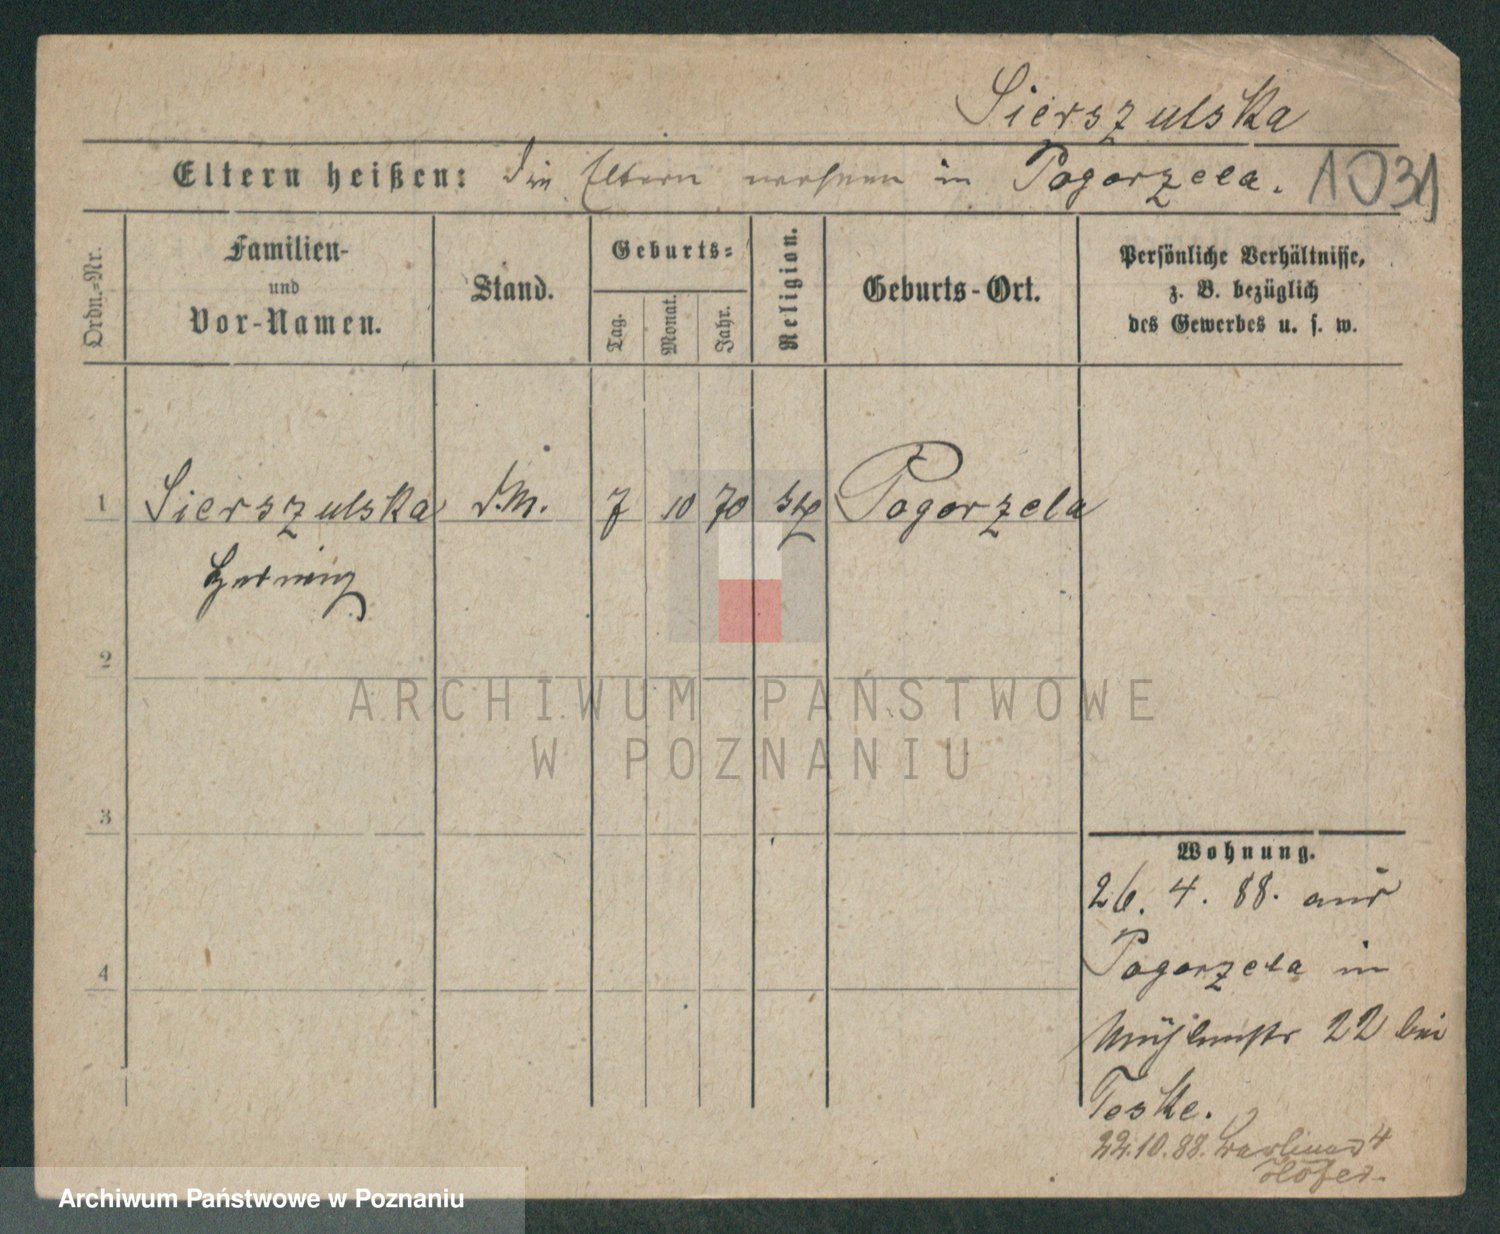 Sierszulska
Eltern heißen: Die Eltern wohnen in Pogorzela. 1031
Ordn.-Nr.
Familien-
und
Vor-Namen.
Stand.
Geburts-
Tag.
Monat.
Jahr.
Religion.
Geburts-Ort.
Persönliche Verhältnisse,
z. B. bezüglich
des Gewerbes u. s. w.
1 Sierszulska D.M. 7 10 70 Pogorzela
Hedwig
2
3
4
Wohnung.
26. 4. 88. aus
Pogorzela in
Mühlenstr 22 bei
Teske.
22.10.88. 4
Höfer.
ARCHIWUM PAŃSTWOWE
W POZNANIU
Archiwum Państwowe w Poznaniu